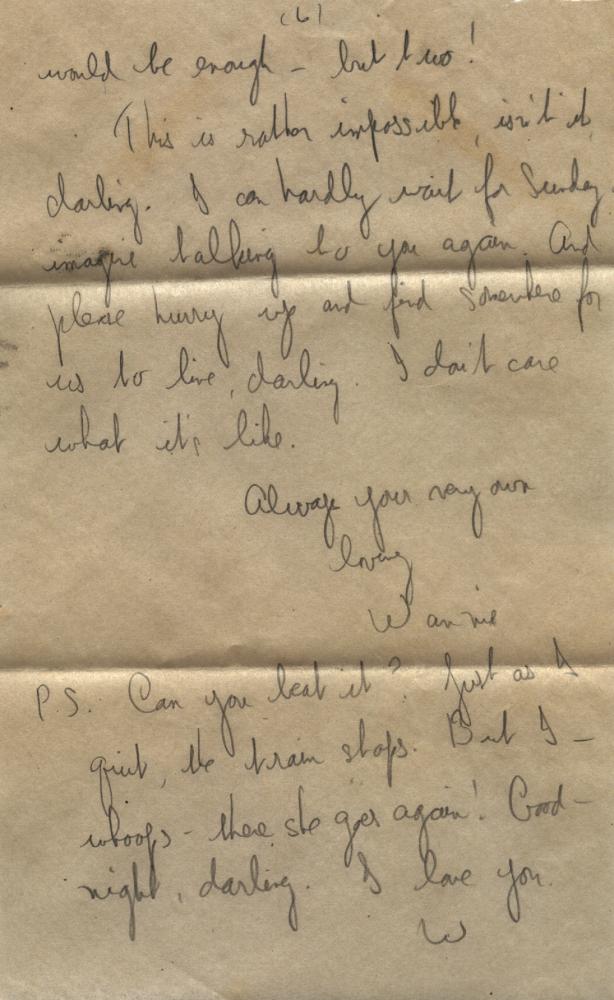 (6)
would be enough – but two!
This is rather impossible, isn't it,
darling. I can hardly wait for Sunday.
imagine talking to you again. And
please hurry up and find somewhere for
us to live, darling. I don't care
what it's like.
Always your very own
loving
Winnie
P.S. Can you beat it? Just as I
quit, the train stops. But I –
whoops – there she goes again! Good-
night, darling. I love you.
W